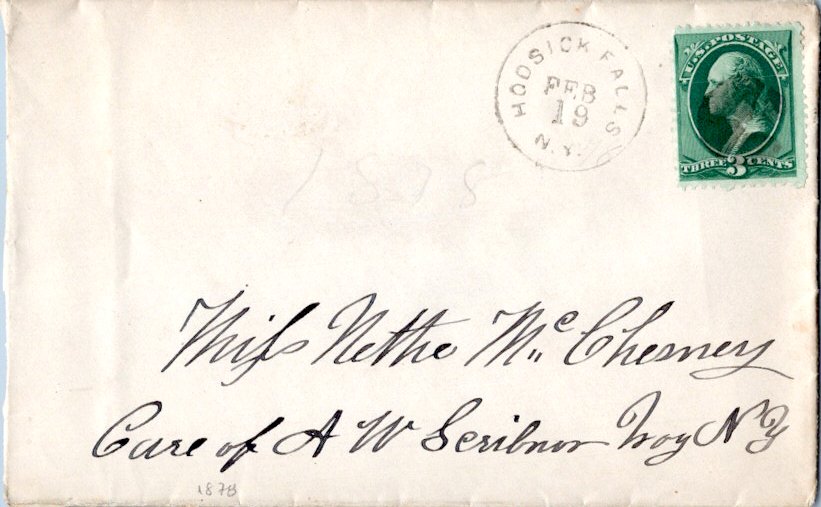 HOOSICK FALLS
FEB
19
N.Y.
U.S. POSTAGE
THREE 3 CENTS
1878
Miss Nettie Mc Chesney
Care of A W Scribnor Troy N Y
1878